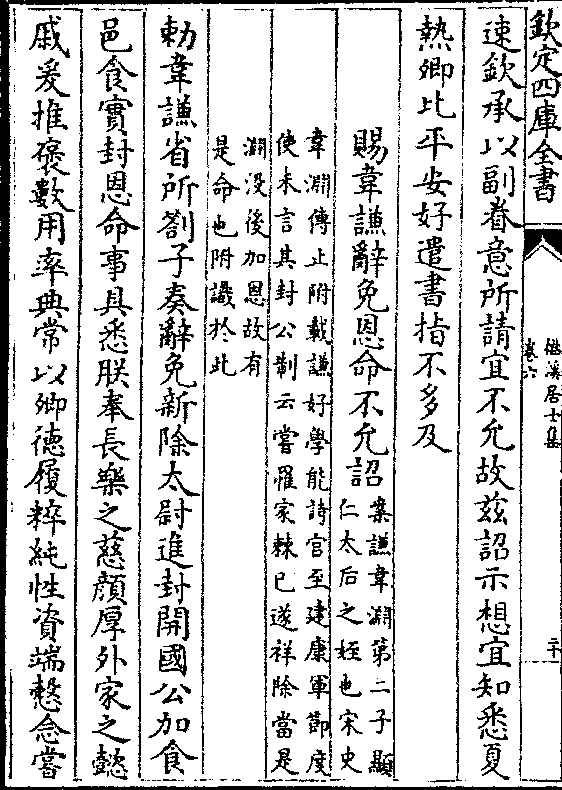 欽定四庫全書
僊溪居士集
卷六
二十
速欽承以副眷意所請宜不允故兹詔示想宜知悉夏
熱卿比平安好遣書指不多及
賜韋謙辭免恩命不允詔
案謙韋淵第二子顯
仁太后之姪也宋史
韋淵傳止附載謙好學能詩官至建康軍節度
使未言其封公制云嘗罹家棘已遂祥除當是
淵没後加恩故有
是命也附識於此
勅韋謙省所劄子奏辭免新除太尉進封開國公加食
邑食實封恩命事具悉朕奉長樂之慈顔厚外家之懿
戚爰推褒數用率典常以卿德履粹純性資端慤念嘗